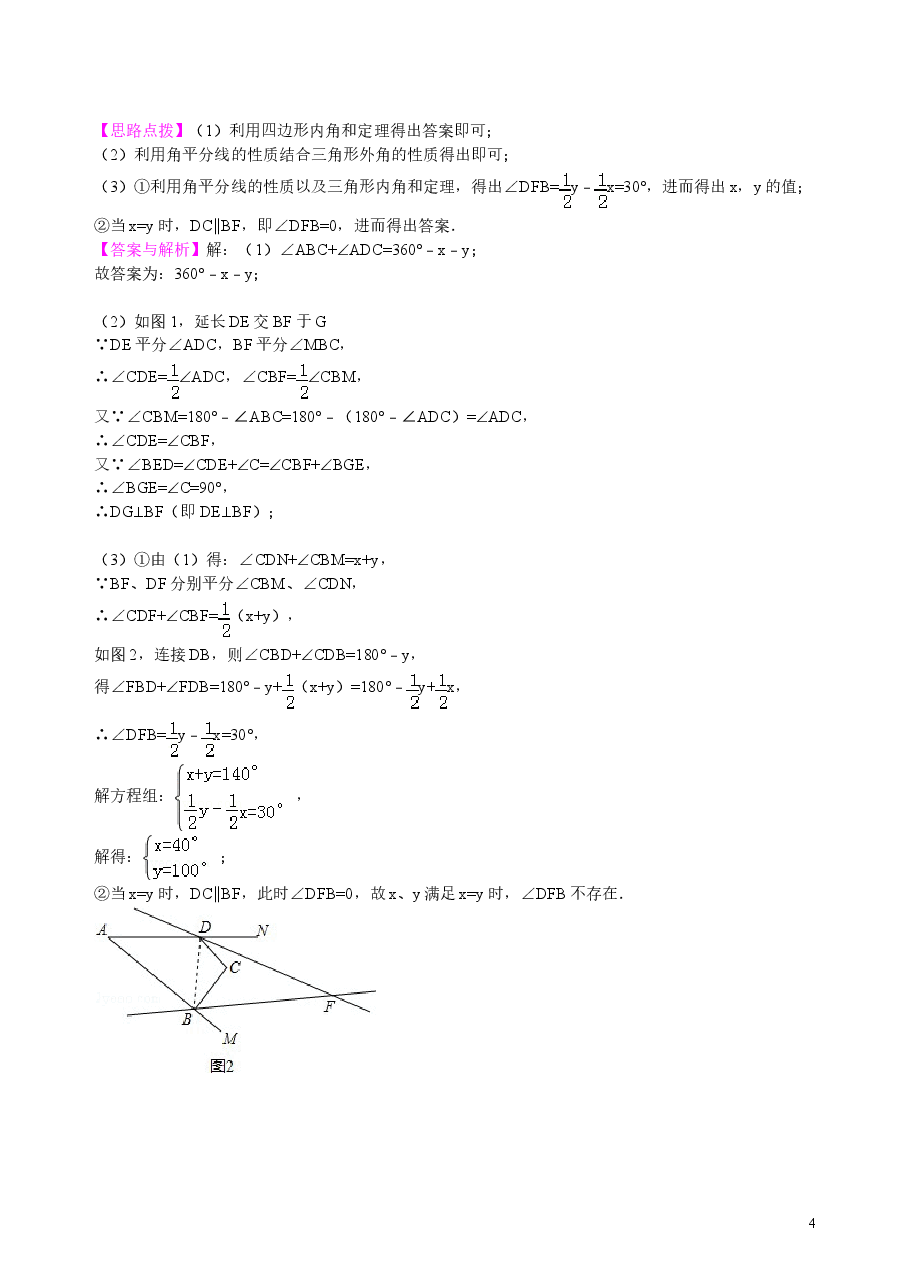 【思路点拨】（1）利用四边形内角和定理得出答案即可；
（2）利用角平分线的性质结合三角形外角的性质得出即可；
（3）①利用角平分线的性质以及三角形内角和定理，得出∠DFB=1/2y﹣1/2x=30°，进而得出 x，y 的值；
②当 x=y 时，DC∥BF，即∠DFB=0，进而得出答案．
【答案与解析】解：（1）∠ABC+∠ADC=360°﹣x﹣y；
故答案为：360°﹣x﹣y；
（2）如图 1，延长 DE 交 BF 于 G
∵DE 平分∠ADC，BF 平分∠MBC，
∴∠CDE=1/2∠ADC，∠CBF=1/2∠CBM，
又∵∠CBM=180°﹣∠ABC=180°﹣（180°﹣∠ADC）=∠ADC，
∴∠CDE=∠CBF，
又∵∠BED=∠CDE+∠C=∠CBF+∠BGE，
∴∠BGE=∠C=90°，
∴DG⊥BF（即 DE⊥BF）；
（3）①由（1）得：∠CDN+∠CBM=x+y，
∵BF、DF 分别平分∠CBM、∠CDN，
∴∠CDF+∠CBF=1/2（x+y），
如图 2，连接 DB，则∠CBD+∠CDB=180°﹣y，
得∠FBD+∠FDB=180°﹣y+1/2（x+y）=180°﹣1/2y+1/2x，
∴∠DFB=1/2y﹣1/2x=30°，
解方程组：{x+y=140°
1/2y﹣1/2x=30°，
解得：{x=40°
y=100°；
②当 x=y 时，DC∥BF，此时∠DFB=0，故 x、y 满足 x=y 时，∠DFB 不存在．
A D N
C
B F
M
图2
4